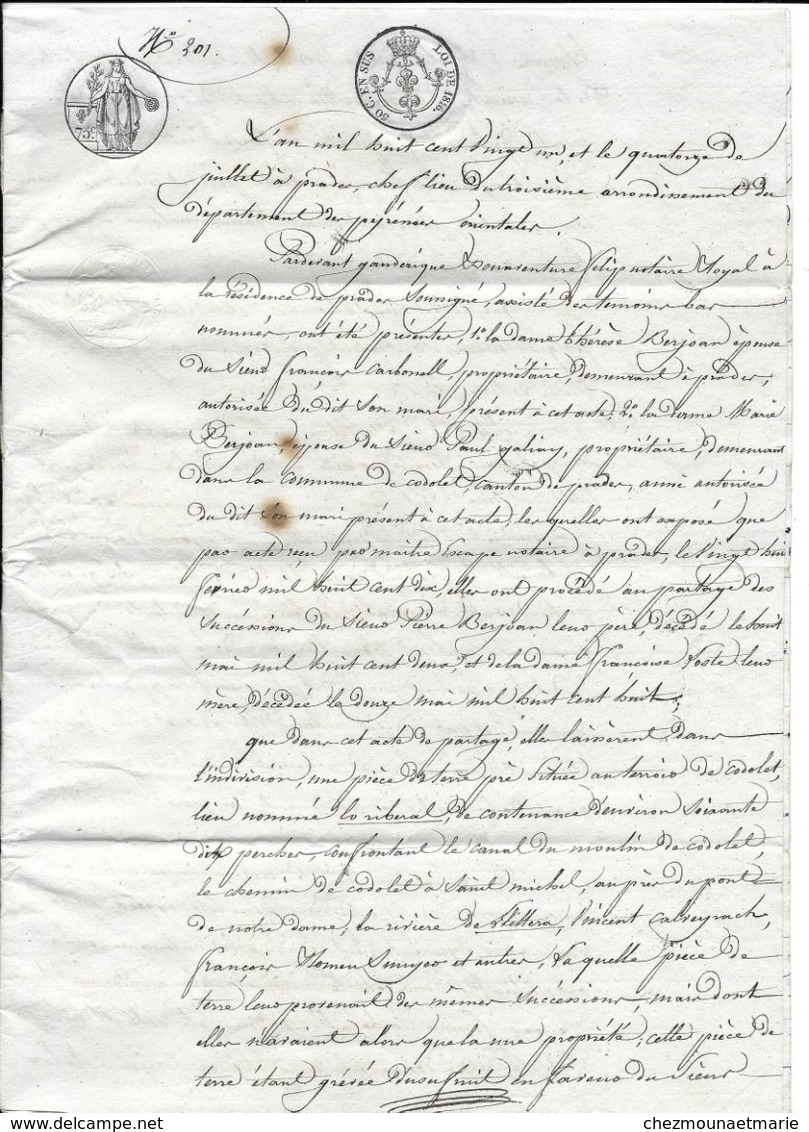 N° 201.
75c
50 C. EN SUS LOI DE 1816.
L'an mil huit cent vingt un, et le quatorze de
juillet à prades, chef lieu du troisième arrondissement du
département des pyrénées orientales.
Pardevant ganderique Bonaventure felip notaire Royal à
la résidence de prades soussigné, assisté des temoins bas
nommés, ont été présentes, 1° la dame thérèse Berjoan épouse
du sieur françois carbonell, propriétaire, demeurant à prades,
autorisée du dit son mari, présent à cet acte, 2° la dame Marie
Berjoan, épouse du sieur Paul galiay, propriétaire, demeurant
dans la commune de codolet, canton de prades, aussi autorisée
du dit son mari présent à cet acte, les quelles ont exposé que
par acte reçu par maitre Escape notaire à prades, le vingt huit
février mil huit cent dix, elles ont procédé au partage des
successions du sieur Pierre Berjoan leur père, décédé le huit
mai mil huit cent deux, et de la dame françoise Coste leur
mère, décédée le douze mai mil huit cent huit;
que dans cet acte de partage, elles laissèrent dans
l'indivision, une pièce de terre pré située au terroir de codolet,
lieu nommé lo riberal, de contenance d'environ soixante
dix perches, confrontant le canal du moulin de codolet,
le chemin de codolet à saint michel, auprès du pont
de notre dame, la rivière de Llittera, vincent
françois Romeu et autres, laquelle pièce de
terre leur provenait des mêmes successions, mais dont
elles n'avaient alors que la nue propriété; cette pièce de
terre étant grévée d'usufruit en faveur du sieur
chezmounaetmarie